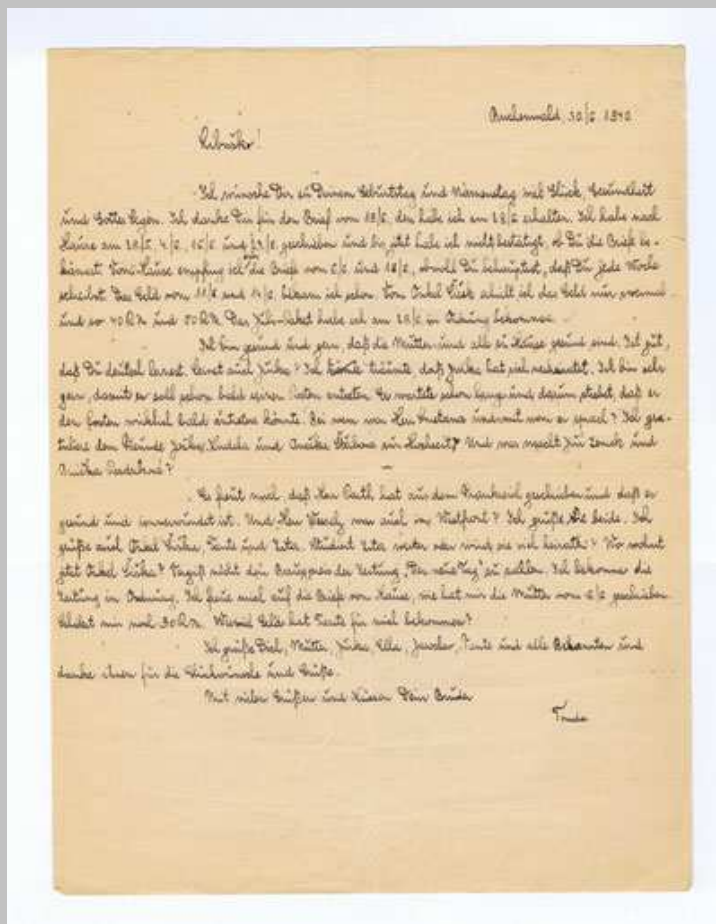 Buchenwald, 30/6 1940
Libuško!
Ich wünsche Dir zu Deinem Geburtstag und Namenstag viel Glück, Gesundheit
und Gottes Segen. Ich danke Dir für den Brief vom 18/6. den habe ich am 28/6 erhalten. Ich habe nach
Hause am 4/6, 16/6 und geschrieben und bis jetzt habe ich nicht bestätigt, ob Du die Briefe be-
kamst. Von Hause empfing ich die Briefe vom 6/6 und 18/6, obwohl Du behauptest, daß Du jede Woche
schreibst. Das Geld vom 11/6 und 14/6 bekam ich schon. Von Onkel erhielt ich das Geld nur zweimal
und zwar 40 RM und 50 RM. Das Paket habe ich am in Ordnung bekommen.
Ich bin gesund und gern, daß die Mutter und alle zu Hause gesund sind. Ist gut,
daß Du deutsch lernst. Lernt auch Jirka? Ich träumte, daß Jirka hat viel Ich bin sehr
gern, daß er soll schon bald seinen Posten antreten. Er wartete schon lang und darum strebt, daß er
den Posten wirklich bald antreten könnte. Bei wem war Herr Smetana und mit wem er sprach? Ich gra-
tuliere dem Freunde und zur Hochzeit. Und was macht und
Es freut mich, daß Herr hat aus dem Frankreich geschrieben und daß er
gesund und unverwundet ist. Und Herr Veselý war auch im Westfront? Ich grüße Sie beide. Ich
grüße auch Onkel Tante und Student Wo wohnt
jetzt Onkel Vergiß nicht den der Zeitung „Der neue Tag" zu zahlen. Ich bekomme die
Zeitung in Ordnung. Ich freue mich auf die Briefe von Hause, wie hat mir die Mutter vom 6/6 geschrieben.
Schicket mir noch 30 RM. Wieviel Geld hat Tante für mich bekommen?
Ich grüße Dich, Mutter, Jirka, Ella, Tante und alle Bekannten und
danke ihnen für die Glückwünsche und Grüße.
Mit vielen Grüßen und Küssen Dein Bruder
Tonda